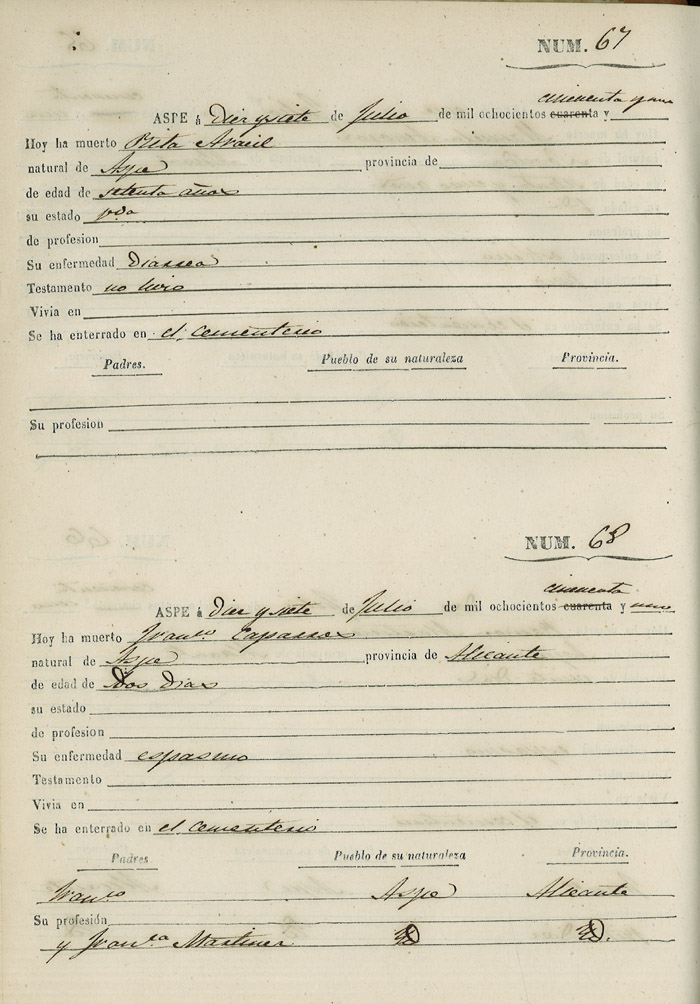 NUM. 67
cincuenta y uno
ASPE á Diez y siete de Julio de mil ochocientos cuarenta y
Hoy ha muerto Rita Aracil
natural de Aspe provincia de
de edad de setenta años
su estado vda
de profesion
Su enfermedad Diarrea
Testamento no hizo
Vivia en
Se ha enterrado en el cementerio
Padres. Pueblo de su naturaleza Provincia.
Su profesion
NUM. 68
cincuenta
ASPE á Diez y siete de Julio de mil ochocientos cuarenta y uno
Hoy ha muerto Franco
natural de Aspe provincia de Alicante
de edad de Dos Dias
su estado
de profesion
Su enfermedad espasmo
Testamento
Vivia en
Se ha enterrado en el cementerio
Padres Pueblo de su naturaleza Provincia.
Franco Aspe Alicante
Su profesión
y Franca Martinez